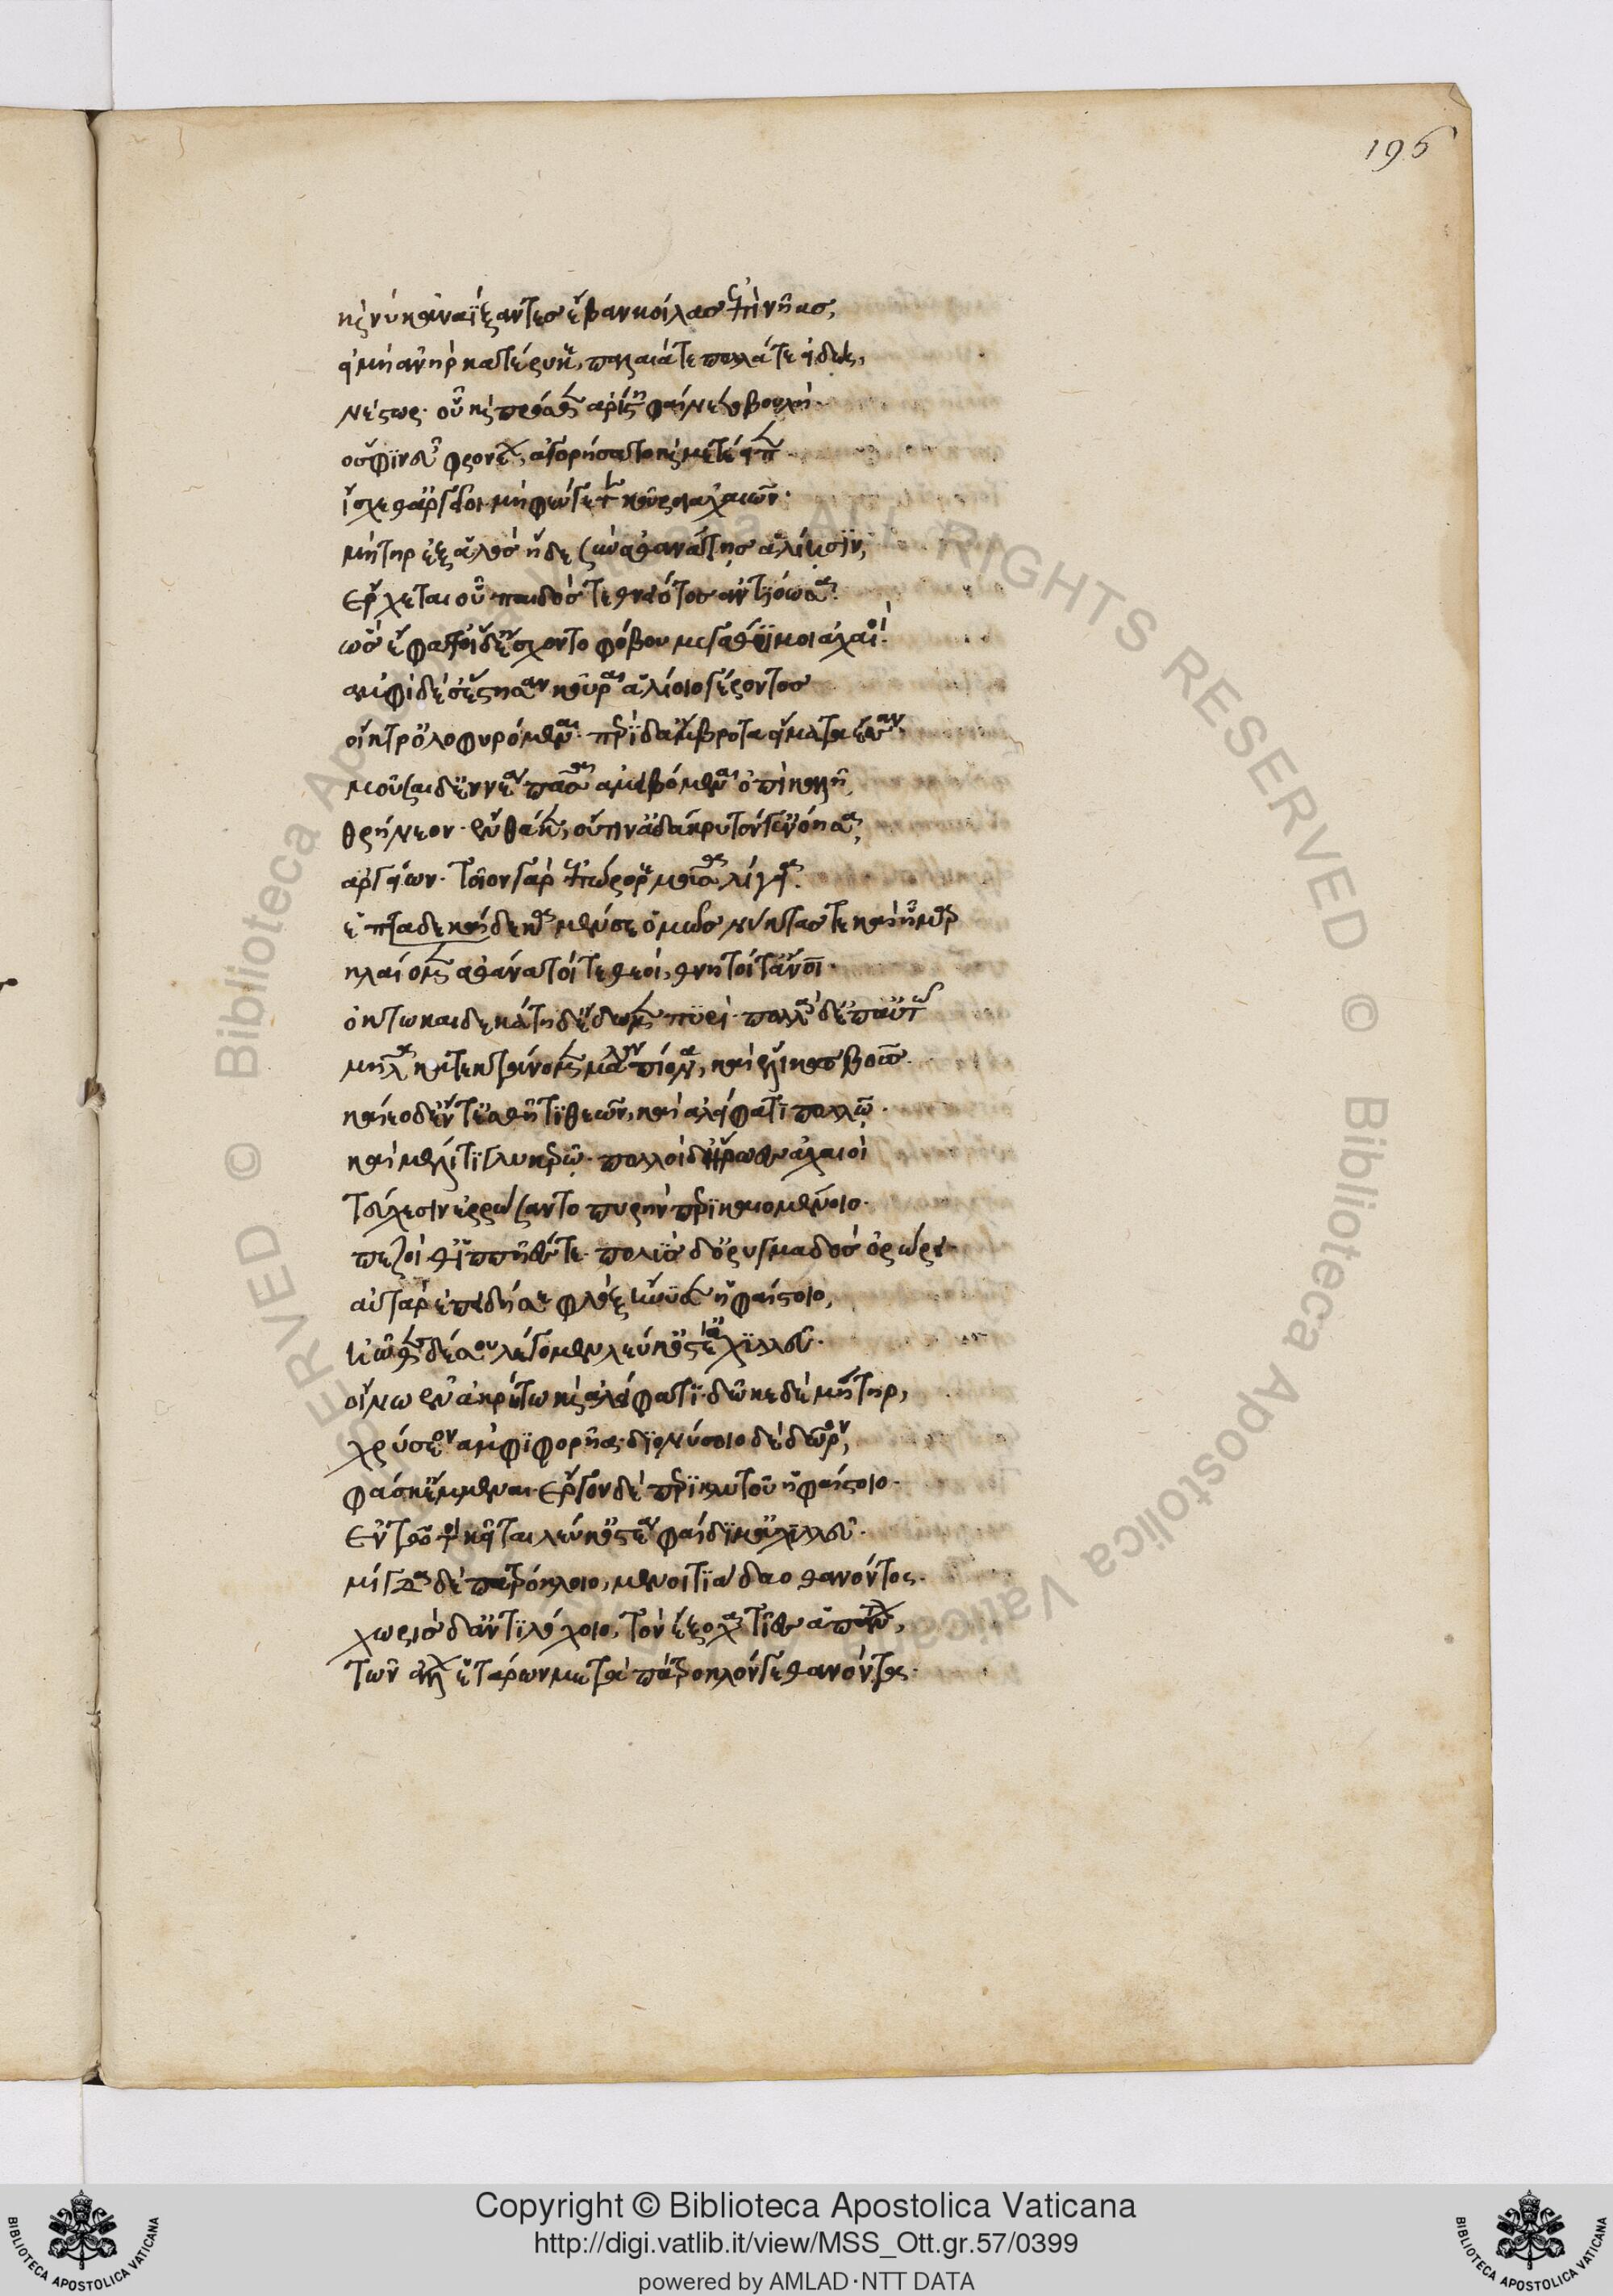 196
καί νύ κ' ἀναΐξαντες ἔβαν κοίλας ἐπὶ νῆας,
εἰ μὴ ἀνὴρ κατέρυκε, παλαιά τε πολλά τε εἰδώς,
Νέστωρ· οὗ καὶ πρόσθεν ἀρίστη φαίνετο βουλή·
ὅ σφϊν ἐϋφρονέων, ἀγορήσατο καὶ μετέειπεν·
ἴσχεσθ' ἀργεῖοι· μὴ φεύγετε κοῦροι ἀχαιῶν·
μήτηρ ἐξ ἁλὸς ἥδε σὺν ἀθανάτῃς ἁλίῃσϊν,
ἔρχεται οὗ παιδὸς τεθνειότος ἀντϊόωσα·
ὣς ἔφαθ' οἱ δ' ἔσχοντο φόβου μεγάθυμοι ἀχαιοί·
ἀμφὶ δέ σ' ἔστησαν κοῦραι ἁλίοιο γέροντος
οἴκτρ' ὀλοφυρόμεναι· περὶ δ' ἄμβροτα εἵματα ἕσσαν·
μοῦσαι δ' ἐννέα πᾶσαι ἀμειβόμεναι ὀπὶ καλῇ
θρήνεον· ἔνθά κεν, οὔτιν' ἀδάκρυτόν γ' ἐνόησας,
ἀργείων· τοῖον γὰρ ἐπώρορε μοῦσα λίγεια·
ἑπταδεκαίδεκα μέν σε ὁμῶς νύκτας τε καὶ ἦμαρ
κλαίομεν ἀθάνατοί τε θεοί, θνητοί τ' ἄνθρωποι·
ὀκτωκαιδεκάτῃ δ' ἔδομεν πυρί· πολλὰ δέ σ' ἀμφὶς
μῆλα κατεκτάνομεν μάλα πίονα, καὶ ἕλικας βοῦς·
καίεο δ' ἔν τ' ἐσθῆτϊ θεῶν, καὶ ἀλείφατϊ πολλῷ·
καὶ μέλιτϊ γλυκερῷ· πολλοὶ δ' ἥρωες ἀχαιοὶ
τεύχεσιν ἐρρώσαντο πυρὴν πέρϊ καιομένοιο·
πεζοί θ' ἱππῆές τε· πολὺς δ' ὀρυμαγδὸς ὀρώρει·
αὐτὰρ ἐπειδή σε φλὸξ ἤνυσεν ἡφαίστοιο,
ἠῶθεν δέ σοι λέγομεν λεύκ' ὀστέα ἀχϊλλεῦ·
οἴνω ἐν ἀκρήτω καὶ ἀλείφατϊ· δῶκε δὲ μήτηρ,
χρύσεον ἀμφϊφορῆα· δϊονύσοιο δὲ δῶρον,
φάσκ' ἔμμεναι· ἔργον δὲ περϊκλυτοῦ ἡφαίστοιο·
ἐν τῷ τοι κεῖται λεύκ' ὀστέα φαίδϊμ' ἀχϊλλεῦ·
μίγδα δὲ πατρόκλοιο, μενοιτϊάδαο θανόντος·
χωρὶς δ' ἀντϊλόχοιο, τὸν ἔξοχα τῖες ἁπάντων,
τῶν ἄλλων ἑτάρων μετὰ πάτροκλόν γε θανόντα·
Copyright © Biblioteca Apostolica Vaticana
http://digi.vatlib.it/view/MSS_Ott.gr.57/0399
powered by AMLAD·NTT DATA